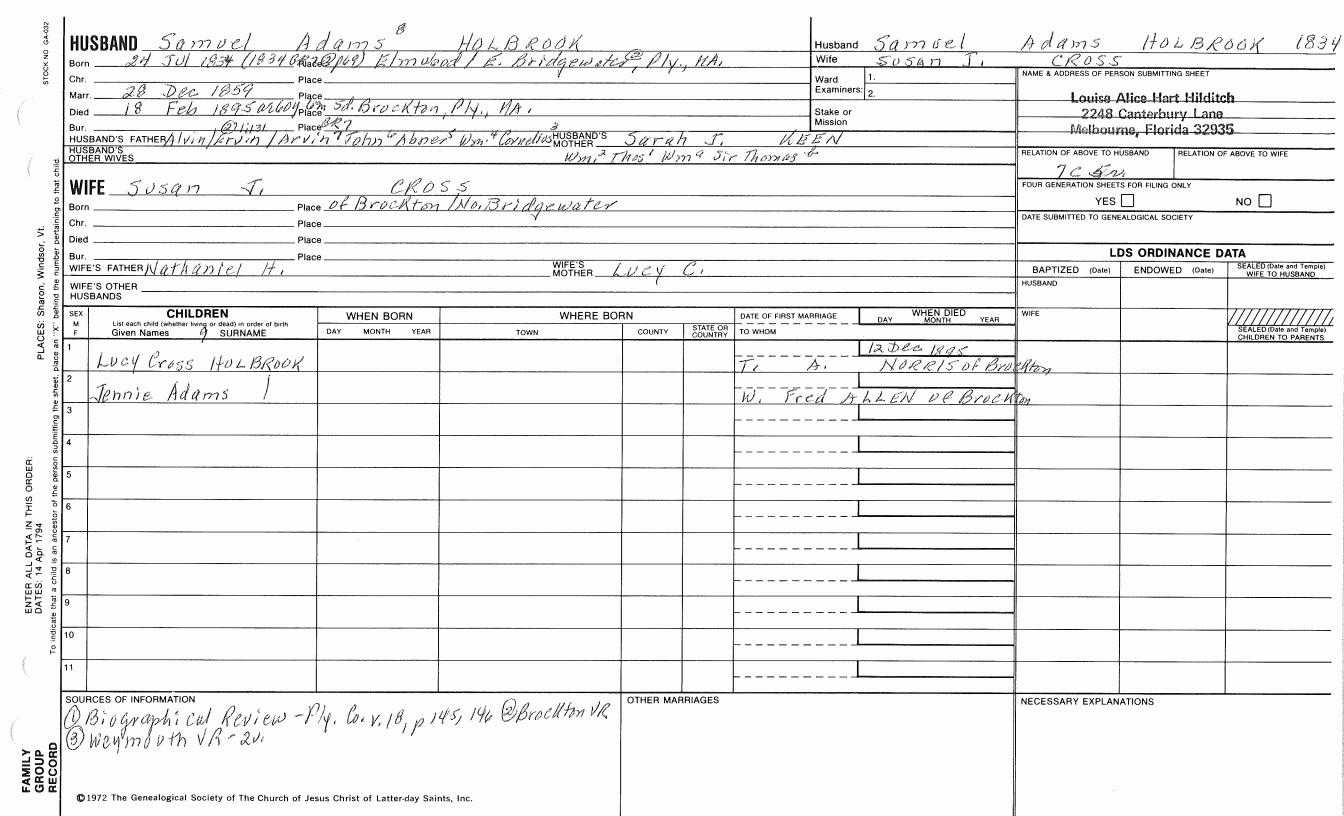 STOCK NO. GA-032
HUSBAND Samuel Adams 8 HOLBROOK
Born 24 Jul 1834 (1834 Place Elmwood / E. Bridgewater, Ply., MA.
Chr. Place
Marr. 28 Dec 1859 Place
Died 18 Feb 1895 Place Brockton, Ply., MA.
Bur. Place
HUSBAND'S FATHER Alvin/Ervin/Arvin 7 John 6 Abner 5 Wm. 4 Cornelius 3 HUSBAND'S MOTHER Sarah J. KEEN
HUSBAND'S OTHER WIVES Wm. 2 Thos 1 Wm a Sir Thomas b
WIFE Susan J. CROSS
Born Place of Brockton / No. Bridgewater
Chr. Place
Died Place
Bur. Place
WIFE'S FATHER Nathaniel H. WIFE'S MOTHER Lucy C.
WIFE'S OTHER HUSBANDS
Husband Samuel Adams HOLBROOK 1834
Wife Susan J. CROSS
Ward Examiners: 1. 2.
Stake or Mission
NAME & ADDRESS OF PERSON SUBMITTING SHEET
Louise Alice Hart Hilditch
2248 Canterbury Lane
Melbourne, Florida 32935
RELATION OF ABOVE TO HUSBAND RELATION OF ABOVE TO WIFE
7C 5r.
FOUR GENERATION SHEETS FOR FILING ONLY
YES NO
DATE SUBMITTED TO GENEALOGICAL SOCIETY
LDS ORDINANCE DATA
BAPTIZED (Date) ENDOWED (Date) SEALED (Date and Temple) WIFE TO HUSBAND
HUSBAND
WIFE
SEALED (Date and Temple) CHILDREN TO PARENTS
SEX M F
CHILDREN
List each child (whether living or dead) in order of birth
Given Names 9 SURNAME
WHEN BORN
DAY MONTH YEAR
WHERE BORN
TOWN COUNTY STATE OR COUNTRY
DATE OF FIRST MARRIAGE
TO WHOM
WHEN DIED
DAY MONTH YEAR
1 12 Dec 1895
Lucy Cross HOLBROOK T. A. NORRIS of Brockton
2
Jennie Adams W. Fred ALLEN of Brockton
3
4
5
6
7
8
9
10
11
SOURCES OF INFORMATION
① Biographical Review - Ply. Co. v. 18, p 145, 146 ② Brockton VR
③ Weymouth VR - 2v.
OTHER MARRIAGES
NECESSARY EXPLANATIONS
©1972 The Genealogical Society of The Church of Jesus Christ of Latter-day Saints, Inc.
PLACES: Sharon, Windsor, Vt.
ENTER ALL DATA IN THIS ORDER:
DATES: 14 Apr 1794
To indicate that a child is an ancestor of the person submitting the sheet, place an "X" behind the number pertaining to that child.
FAMILY
GROUP
RECORD